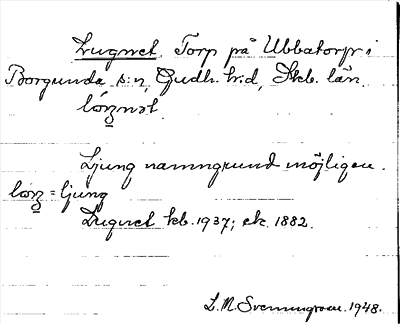 Lugnet. Torp på Ubbatorp i
Borgunda s:n, Gudh. h:d, Skb. län.
Ljung namngrund möjligen.
= ljung
Lugnet kb. 1937; ek. 1882.
L. M. Svenungsson. 1948.